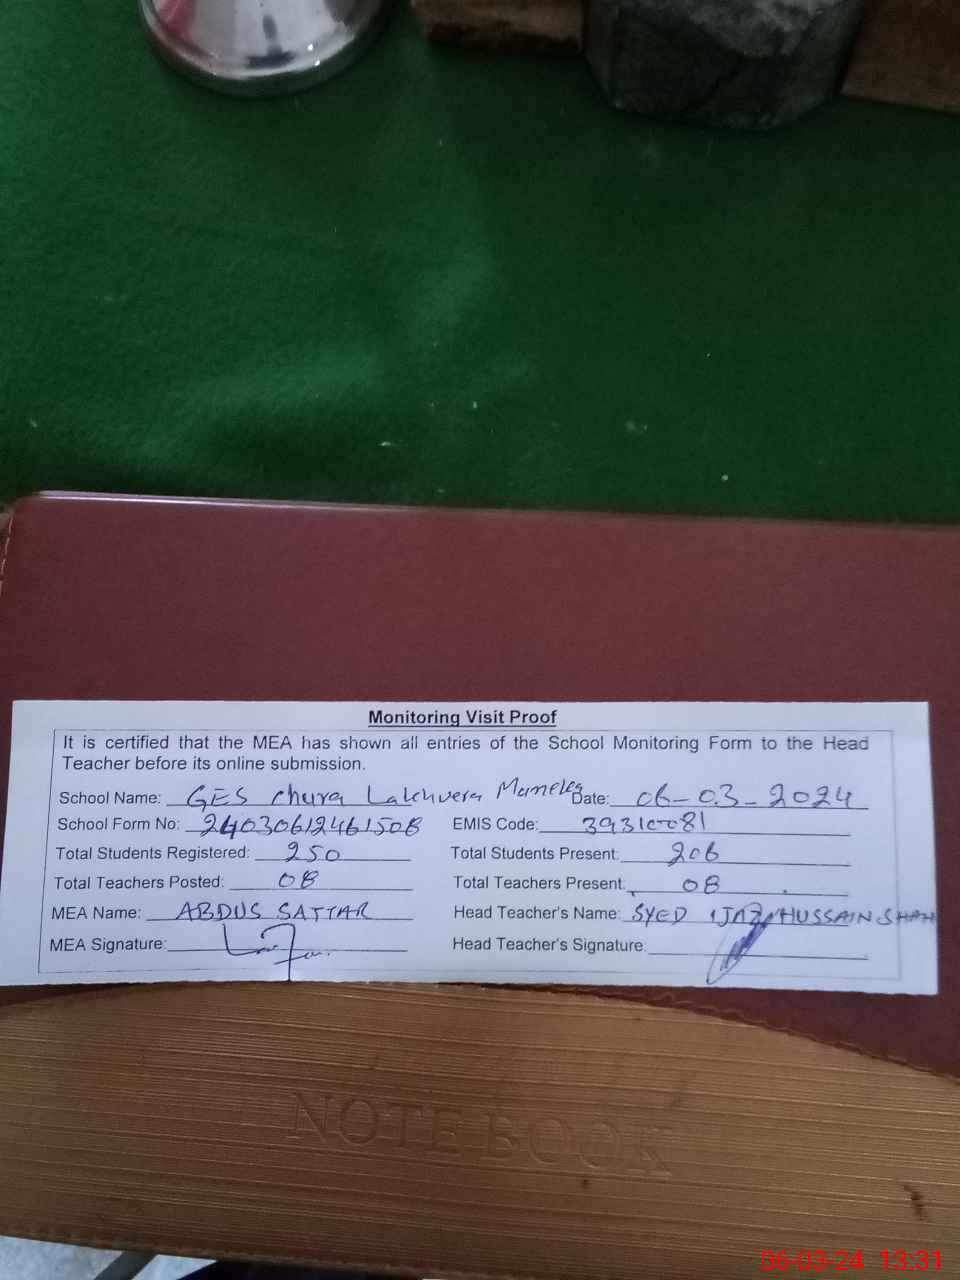 Monitoring Visit Proof
It is certified that the MEA has shown all entries of the School Monitoring Form to the Head
Teacher before its online submission.
School Name: GES Chura Lakhvera Date: 06-03-2024
School Form No: 24030612461508 EMIS Code: 39310081
Total Students Registered: 250 Total Students Present: 206
Total Teachers Posted: 08 Total Teachers Present: 08
MEA Name: ABDUS SATTAR Head Teacher's Name: SYED IJAZ HUSSAIN SHAH
MEA Signature: Head Teacher's Signature:
NOTEBOOK
06-03-24 13:31